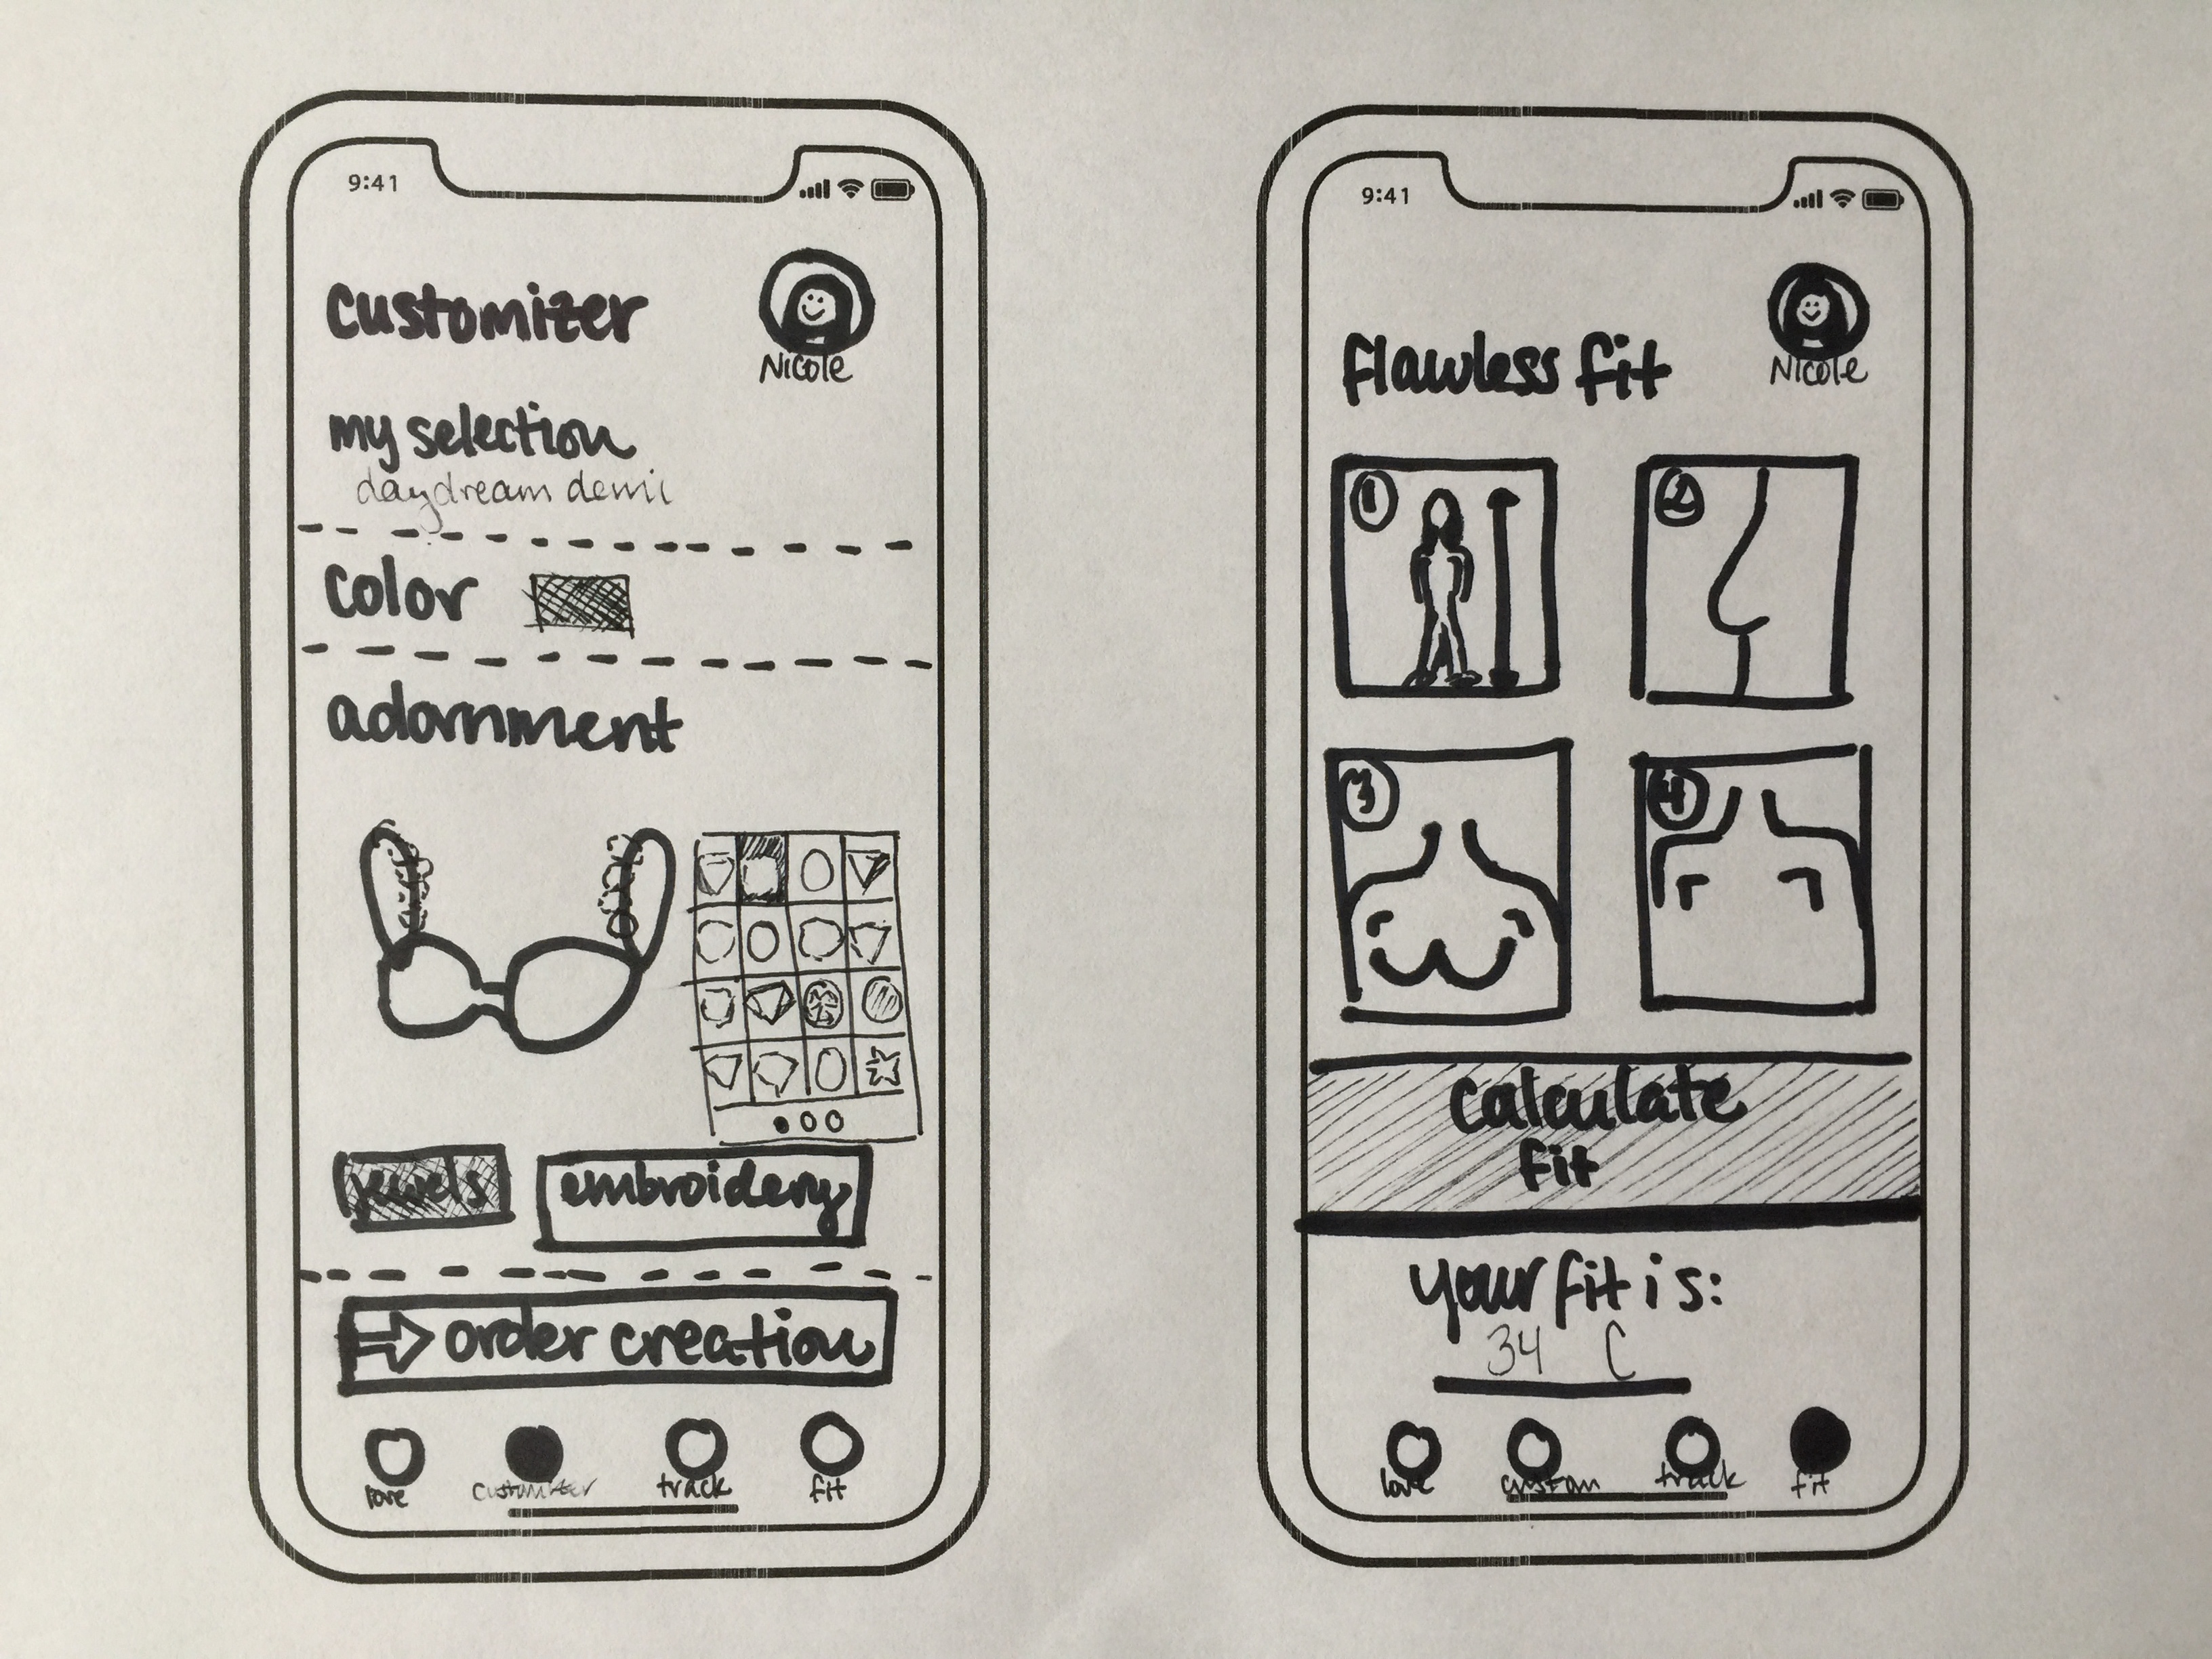 9:41
customizer
Nicole
my selection
daydream demi
color
adornment
jewels
embroidery
order creation
love
customizer
track
fit
9:41
flawless fit
Nicole
1
2
3
4
calculate
fit
your fit is:
34 C
love
custom
track
fit